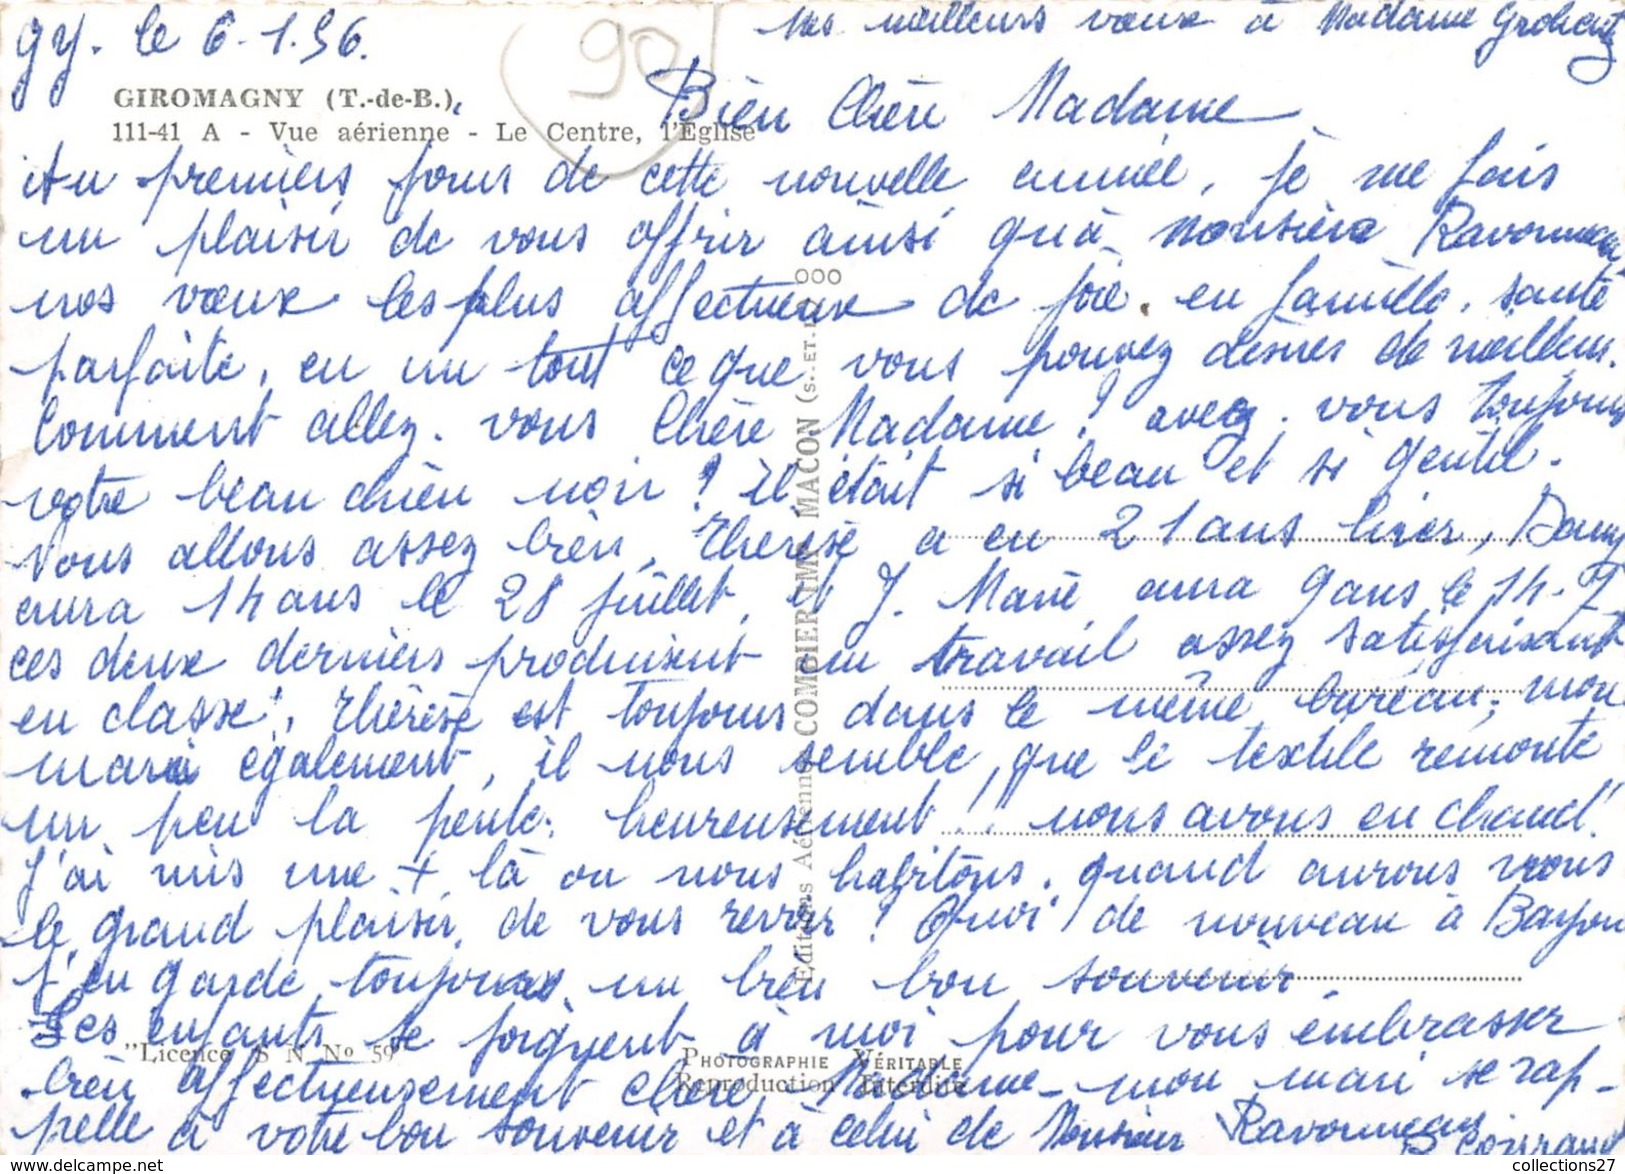 Mes meilleurs vœux à Madame
gy. le 6.1.56.
90
GIROMAGNY (T.-de-B.)
Bien Chère Madame
111-41 A - Vue aérienne - Le Centre, l'Eglise
Au premiers jours de cette nouvelle année, je me fais
un plaisir de vous offrir ainsi qu'à Monsieur Ravonneau
nos vœux les plus affectueux de joie en famille, santé
parfaite, en un tout ce que vous pouvez désirer de meilleur.
Comment allez-vous Chère Madame? avez-vous toujours
votre beau chien noir? il était si beau et si gentil.
Nous allons assez bien, Thérèse a eu 21 ans hier, Dany
aura 14 ans le 28 juillet, et J. Marie aura 9 ans le 14-7
ces deux derniers produisent un travail assez satisfaisant
en classe, Thérèse est toujours dans le même bureau, mon
mari également, il nous semble que le textile remonte
un peu la pente. heureusement!! nous avons eu chaud!
J'ai mis une + là ou nous habitons. quand aurons nous
le grand plaisir de vous revoir! de nouveau à Bayon
j'en garde toujours un bien bon souvenir.
Les enfants se joignent à moi pour vous embrasser
"Licence S N No 59"
PHOTOGRAPHIE VÉRITABLE
Reproduction Interdite
bien affectueusement chère Madame - mon mari se rap-
pelle à votre bon souvenir et à celui de Monsieur Ravonneau
Editions Aériennes COMBIER IMP. MACON (S.-ET-L.) 000
collections27